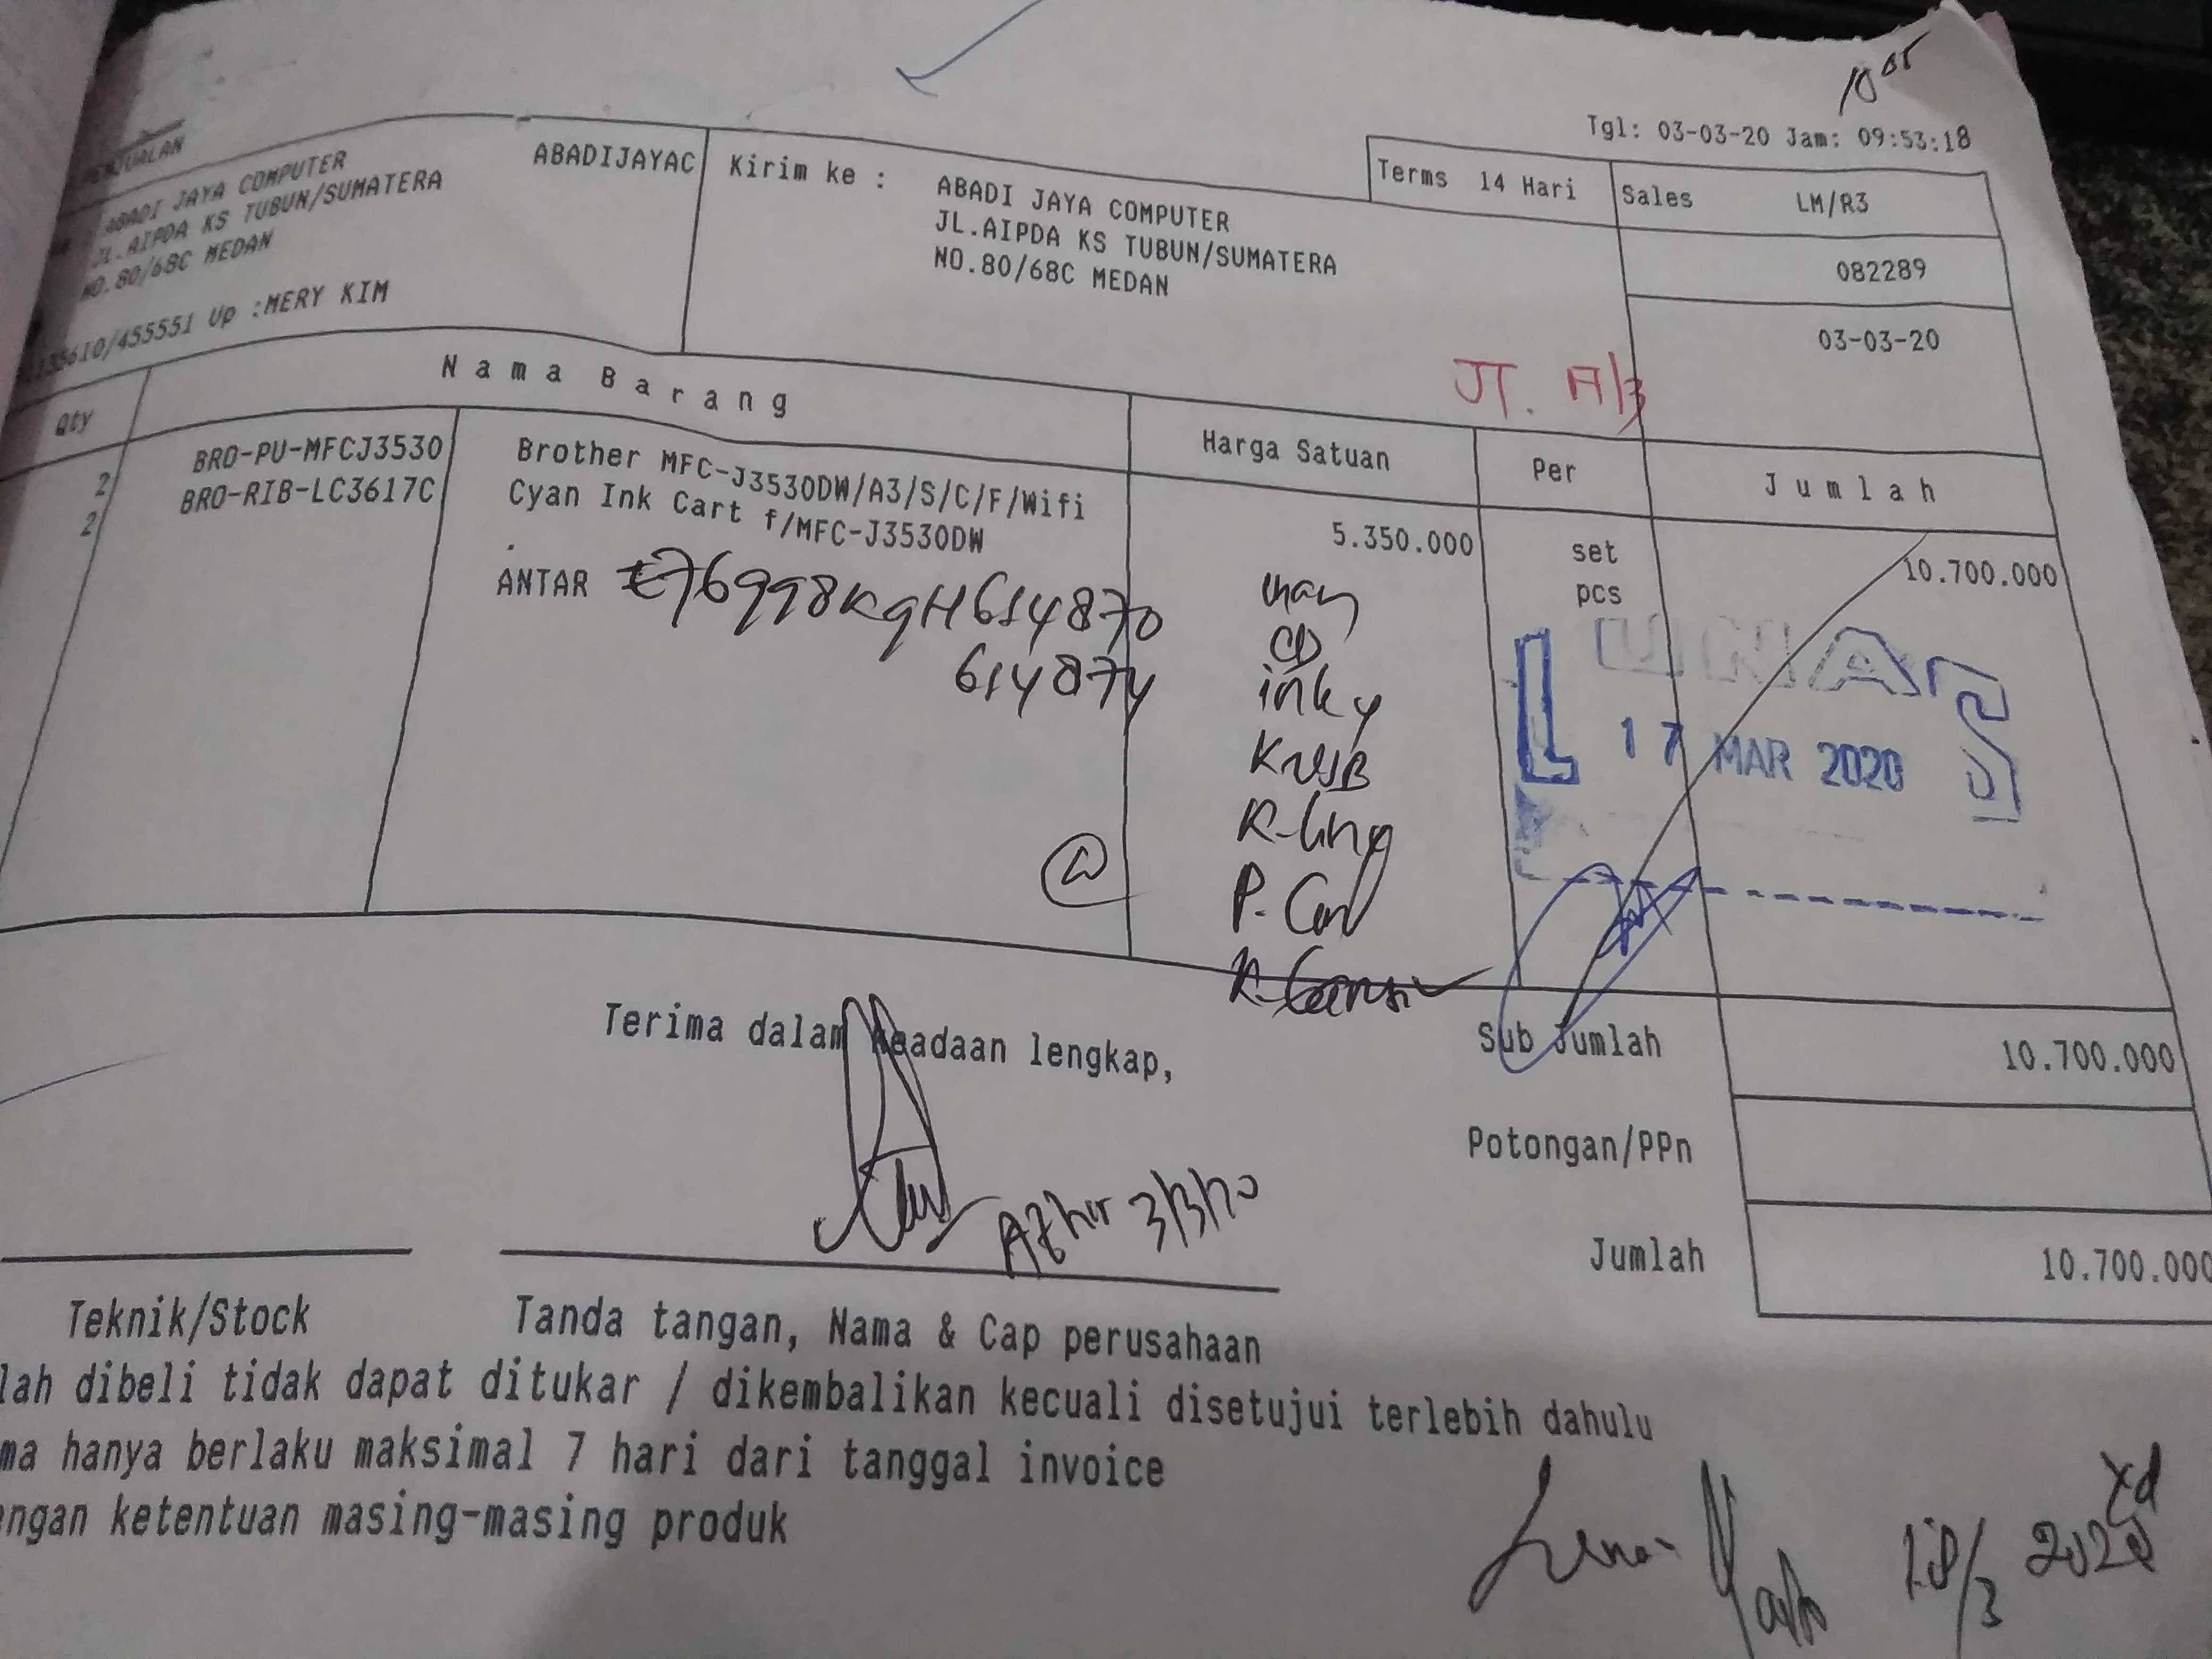 10 05
Tgl: 03-03-20 Jam: 09:53:18
PENJUALAN
ABADI JAYA COMPUTER
JL.AIPDA KS TUBUN/SUMATERA
NO.80/68C MEDAN
35610/455551 Up :MERY KIM
ABADIJAYAC
Kirim ke :
ABADI JAYA COMPUTER
JL.AIPDA KS TUBUN/SUMATERA
NO.80/68C MEDAN
Terms 14 Hari
Sales LM/R3
082289
03-03-20
JT. 17/3
Qty Nama Barang Harga Satuan Per Jumlah
2 BRO-PU-MFCJ3530 Brother MFC-J3530DW/A3/S/C/F/Wifi 5.350.000 set 10.700.000
2 BRO-RIB-LC3617C Cyan Ink Cart f/MFC-J3530DW pcs
.
ANTAR E76998K9H614870
614874
CD
K USB
LUNAS
17 MAR 2020
Terima dalam keadaan lengkap,
Azhir 3/3/20
Sub Jumlah 10.700.000
Potongan/PPn
Jumlah 10.700.000
Teknik/Stock
Tanda tangan, Nama & Cap perusahaan
lah dibeli tidak dapat ditukar / dikembalikan kecuali disetujui terlebih dahulu
ma hanya berlaku maksimal 7 hari dari tanggal invoice
engan ketentuan masing-masing produk
18/3 2020